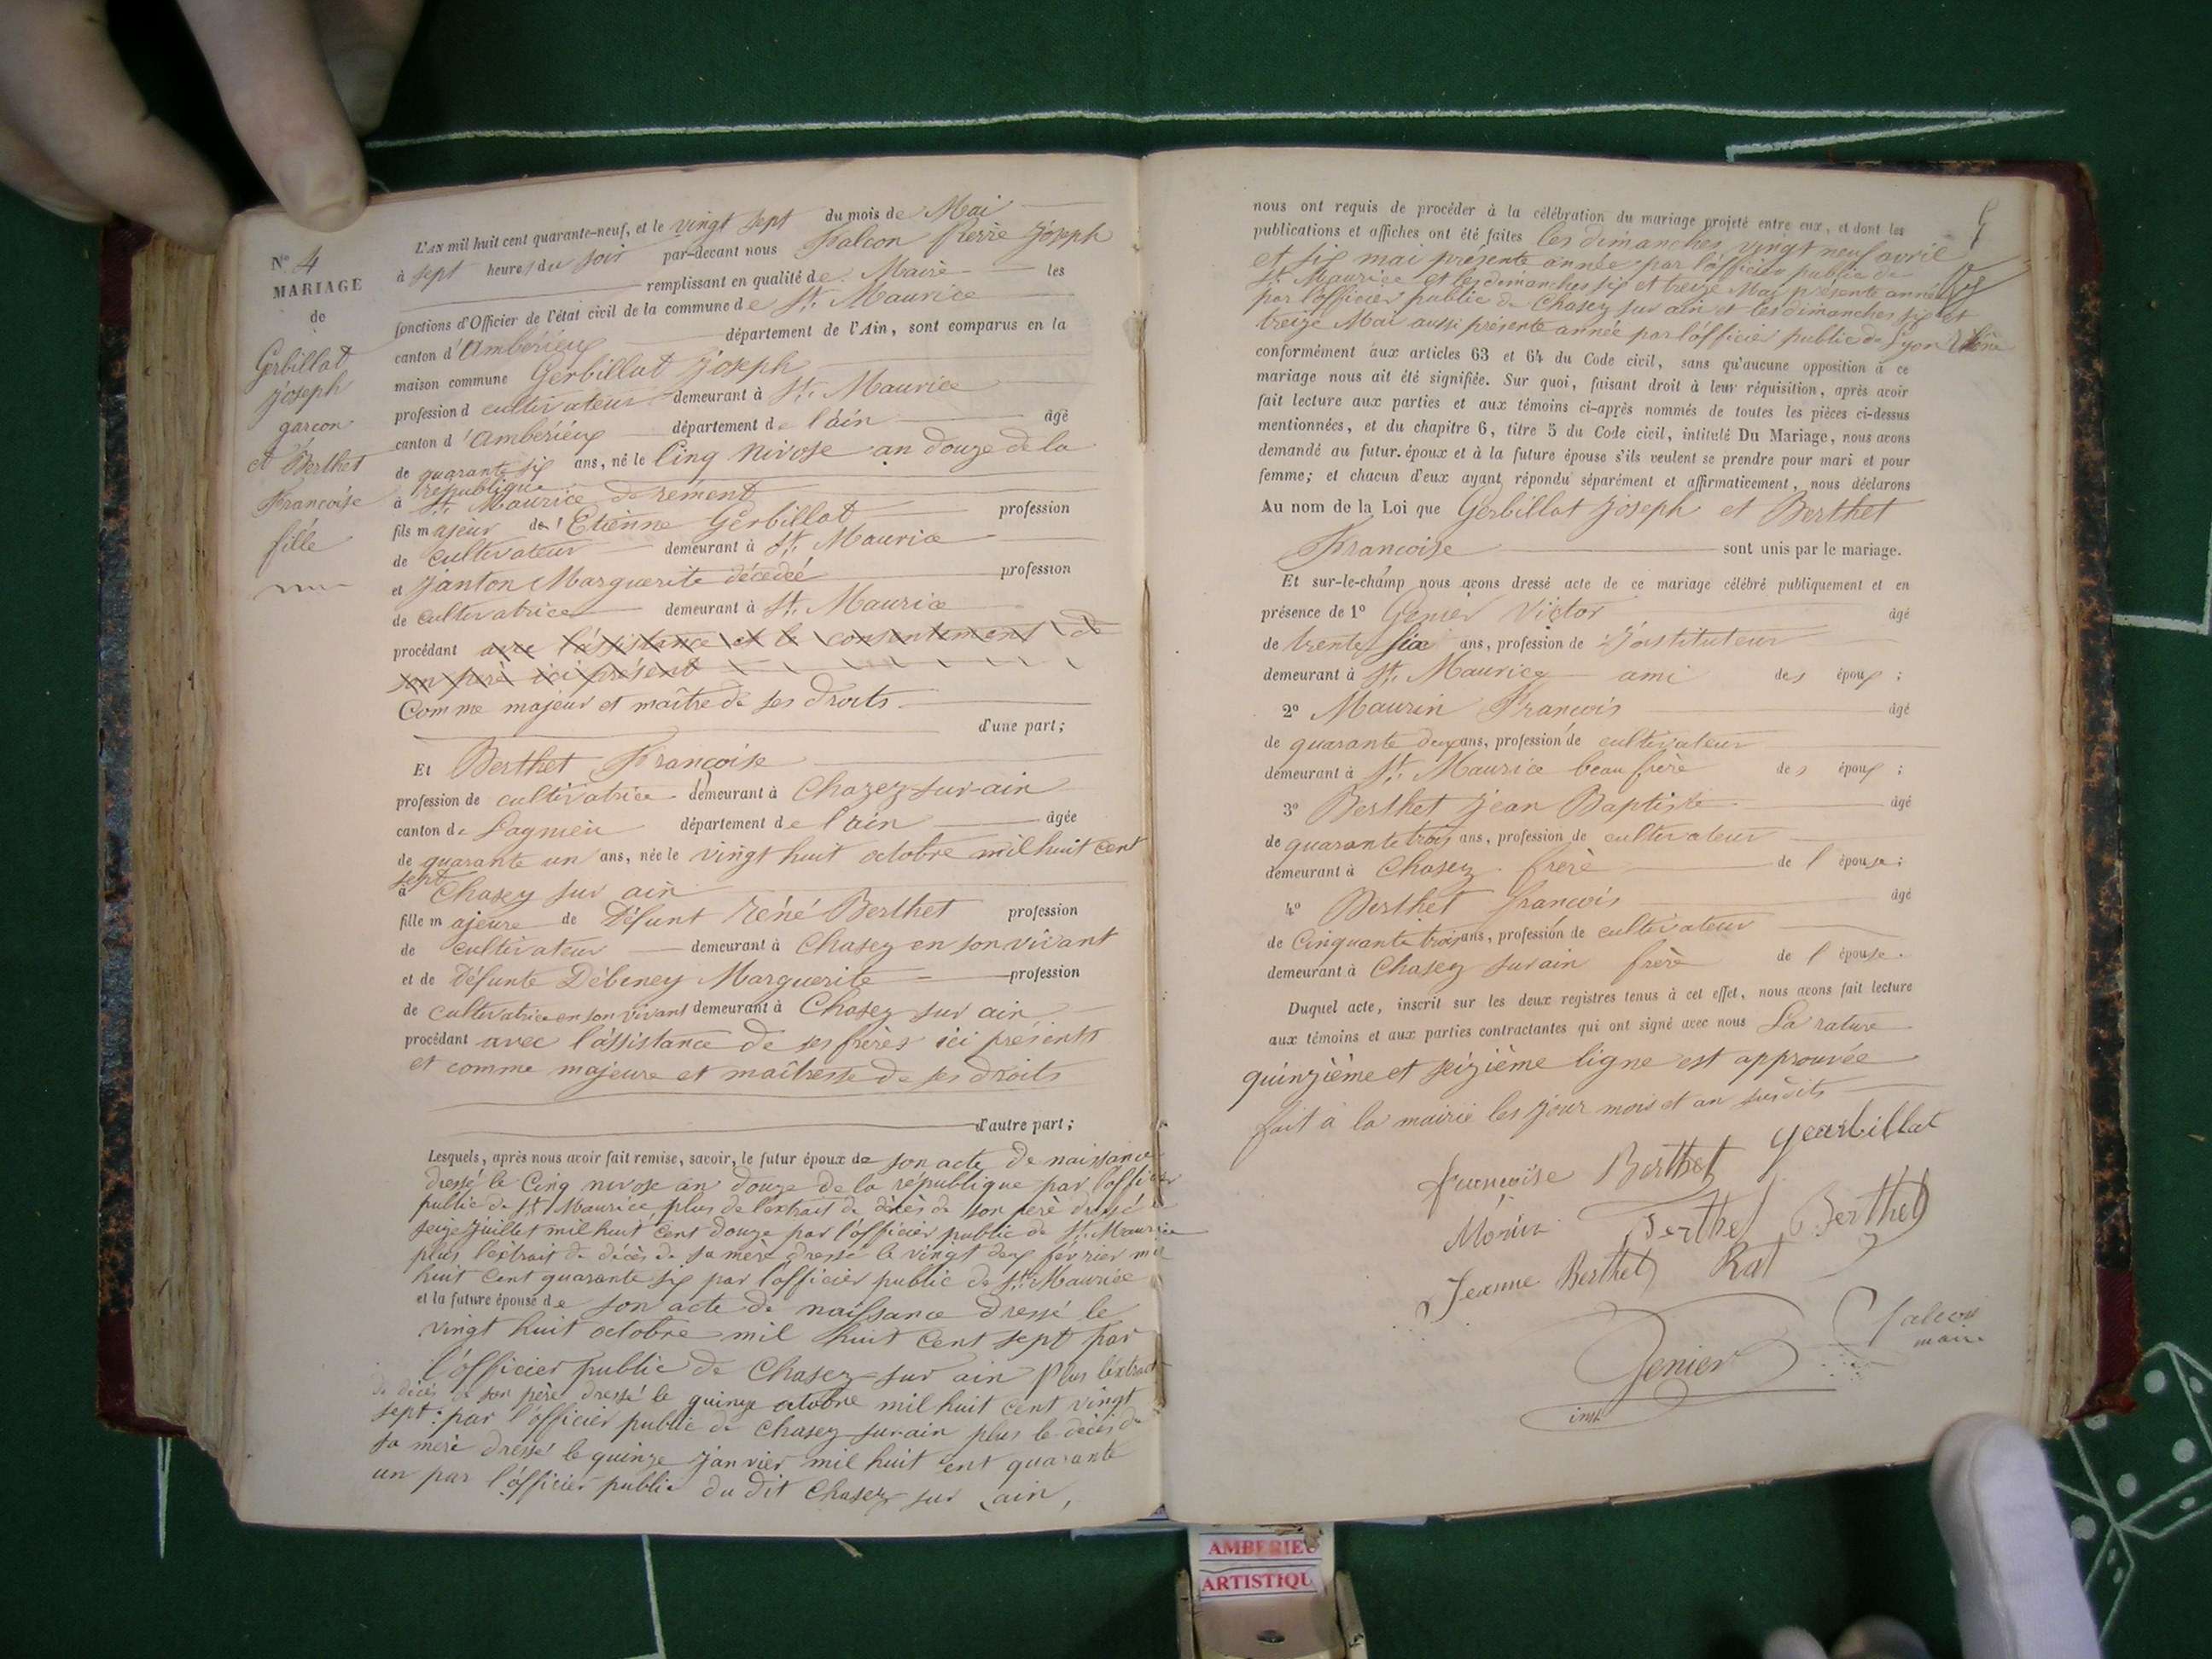 N° 4
MARIAGE
de
Gerbillat
Joseph
garçon
et Berthet
Françoise
fille
L'AN mil huit cent quarante-neuf, et le vingt sept du mois de Mai
à sept heures du soir par-devant nous Falcon Pierre Joseph
remplissant en qualité de Maire les
fonctions d'Officier de l'état civil de la commune de St. Maurice
canton d'Ambérieux département de l'Ain, sont comparus en la
maison commune Gerbillat Joseph
profession d cultivateur demeurant à St. Maurice
canton d'Ambérieux département de l'ain âgé
de quarante six ans, né le Cinq Nivose an douze de la
republique
à St. Maurice de rément
fils majeur de Etienne Gerbillat profession
de cultivateur demeurant à St. Maurice
et Janton Marguerite décédée profession
de cultivatrice demeurant à St. Maurice
procédant avec l'assistance et le consentement de
son père ici présent
Comme majeur et maître de ses droits
d'une part;
Et Berthet Françoise
profession de cultivatrice demeurant à Chazey-sur-ain
canton de Lagnieu département de l'ain âgée
de quarante un ans, née le vingt huit octobre mil huit cent
sept
à Chasey sur ain
fille majeure de Défunt Réné Berthet profession
de cultivateur demeurant à Chasey en son vivant
et de Défunte Débeney Marguerite profession
de cultivatrice en son vivant demeurant à Chasey sur ain
procédant avec l'assistance de ses frères ici présents
et comme majeure et maîtresse de ses droits
d'autre part;
Lesquels, après nous avoir fait remise, savoir, le futur époux de son acte de naissance
dressé le Cinq nivose an douze de la république par l'officier
public de St Maurice plus de l'extrait de décès de son père dressé le
seize Juillet mil huit cent douze par l'officier public de St. Maurice
plus l'extrait de décès de sa mère dressé le vingt deux février mil
huit cent quarante six par l'officier public de St. Maurice
et la future épouse de son acte de naissance dressé le
vingt huit octobre mil huit cent sept par
l'officier public de Chasey-sur ain plus l'extrait
de décès de son père dressé le quinze octobre mil huit cent vingt
sept par l'officier public de Chasey sur ain plus le décès de
sa mère dressé le quinze Janvier mil huit cent quarante
un par l'officier public du dit Chasey sur ain,
nous ont requis de procéder à la célébration du mariage projeté entre eux, et dont les
publications et affiches ont été faites les dimanches vingt neuf avril
et six mai présente année par l'officier public de
St. Maurice et les dimanches six et treize Mai présente année
par l'officier public de Chasey sur ain et les dimanches six et
treize Mai aussi présente année par l'officier public de Lyon Rhône
conformément aux articles 63 et 64 du Code civil, sans qu'aucune opposition à ce
mariage nous ait été signifiée. Sur quoi, faisant droit à leur réquisition, après avoir
fait lecture aux parties et aux témoins ci-après nommés de toutes les pièces ci-dessus
mentionnées, et du chapitre 6, titre 5 du Code civil, intitulé Du Mariage, nous avons
demandé au futur époux et à la future épouse s'ils veulent se prendre pour mari et pour
femme; et chacun d'eux ayant répondu séparément et affirmativement, nous déclarons
Au nom de la Loi que Gerbillat Joseph et Berthet
Françoise sont unis par le mariage.
Et sur-le-champ nous avons dressé acte de ce mariage célébré publiquement et en
présence de 1° Genier Victor âgé
de trente six ans, profession de Instituteur
demeurant à St. Maurice ami des époux;
2° Maurin François âgé
de quarante deux ans, profession de cultivateur
demeurant à St. Maurice beau frère des époux;
3° Berthet Jean Baptiste âgé
de quarante trois ans, profession de cultivateur
demeurant à Chasey frère de l'épouse;
4° Berthet François âgé
de Cinquante trois ans, profession de cultivateur
demeurant à Chasey sur ain frère de l'épouse.
Duquel acte, inscrit sur les deux registres tenus à cet effet, nous avons fait lecture
aux témoins et aux parties contractantes qui ont signé avec nous La rature
quinzième et seizième ligne est approuvée
fait à la mairie les jour mois et an susdits
françoise Berthet gearbillat
Morin Berthet Berthet
Jeanne Berthet Rat
Genier
inst.
falcon
maire
AMBERIEU
ARTISTIQU